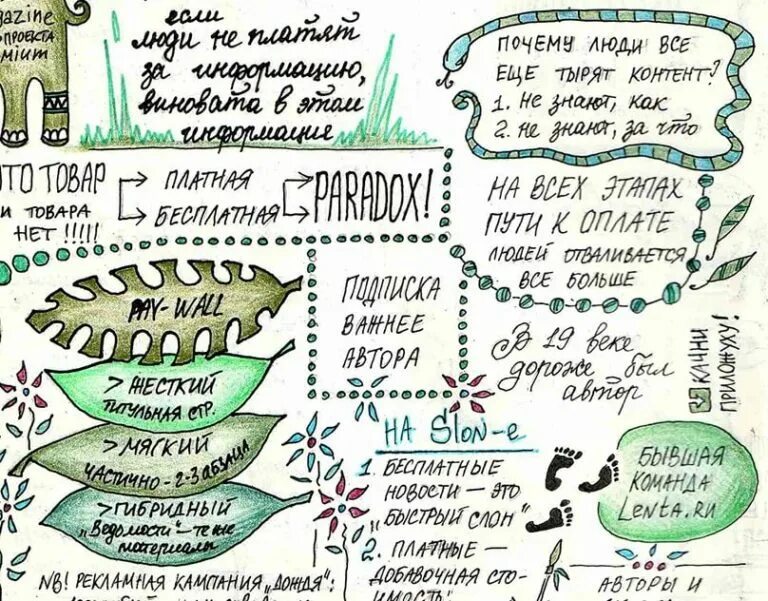 azine
ПРОЕКТА
mium
если
люди не платят
за информацию,
виновата в этом
информация
ПОЧЕМУ ЛЮДИ ВСЕ
ЕЩЕ ТЫРЯТ КОНТЕНТ?
1. Не знают, как
2. не знают, за что
ТО ТОВАР
И ТОВАРА
НЕТ !!!!!
ПЛАТНАЯ
БЕСПЛАТНАЯ
PARADOX!
НА ВСЕХ ЭТАПАХ
ПУТИ К ОПЛАТЕ
ЛЮДЕЙ ОТВАЛИВАЕТСЯ
ВСЕ БОЛЬШЕ
PAY-WALL
> ЖЕСТКИЙ
ТИТУЛЬНАЯ СТР.
> МЯГКИЙ
ЧАСТИЧНО - 2-3 АБЗАЦА
> ГИБРИДНЫЙ
"Ведомости" - те же
материалы
NB! РЕКЛАМНАЯ КАМПАНИЯ „ДОЖДЯ":
ПОДПИСКА
ВАЖНЕЕ
АВТОРА
В 19 веке
дороже был
автор
КАЧНИ
ПРИЛОЖУХУ!
НА Slon-е
1. БЕСПЛАТНЫЕ
НОВОСТИ — ЭТО
„БЫСТРЫЙ СЛОН"
2. ПЛАТНЫЕ —
ДОБАВОЧНАЯ СТО-
ИМОСТЬ
БЫВШАЯ
КОМАНДА
Lenta.ru
АВТОРЫ И